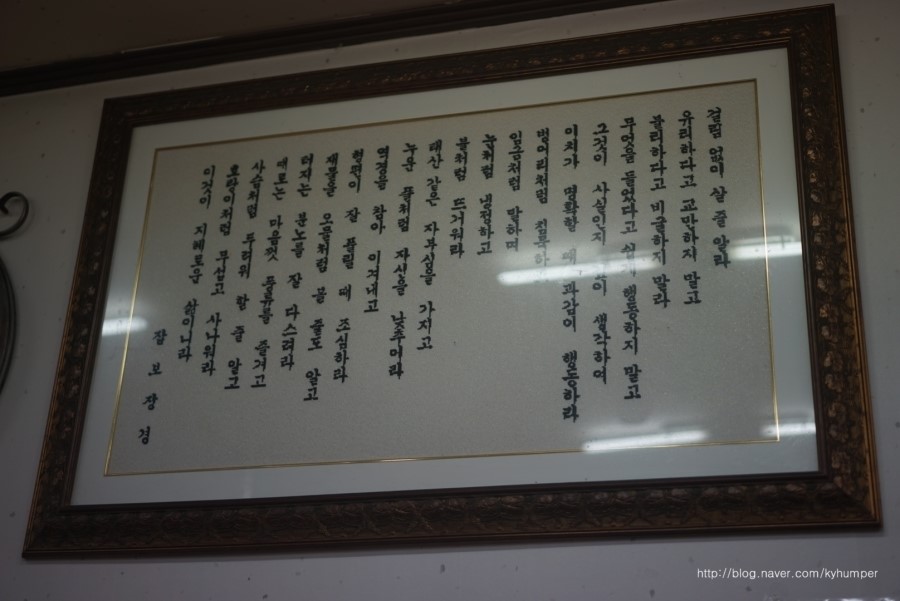 걸림 없이 살 줄 알라
유리하다고 교만하지 말고
불리하다고 비굴하지 말라
무엇을 들었다고 쉽게 행동하지 말고
그것이 사실인지 생각하여
이치가 명확할 때 과감히 행동하라
벙어리처럼 침묵하고
임금처럼 말하며
눈처럼 냉정하고
불처럼 뜨거워라
태산 같은 자부심을 가지고
누운 풀처럼 자신을 낮추어라
역경을 참아 이겨내고
형편이 잘 풀릴 때 조심하라
재물을 오물처럼 볼 줄도 알고
터지는 분노를 잘 다스려라
때로는 마음껏 풍류를 즐기고
사슴처럼 두려워 할 줄 알고
호랑이처럼 무섭고 사나워라
이것이 지혜로운 삶이니라
잡보장경
http://blog.naver.com/kyhumper